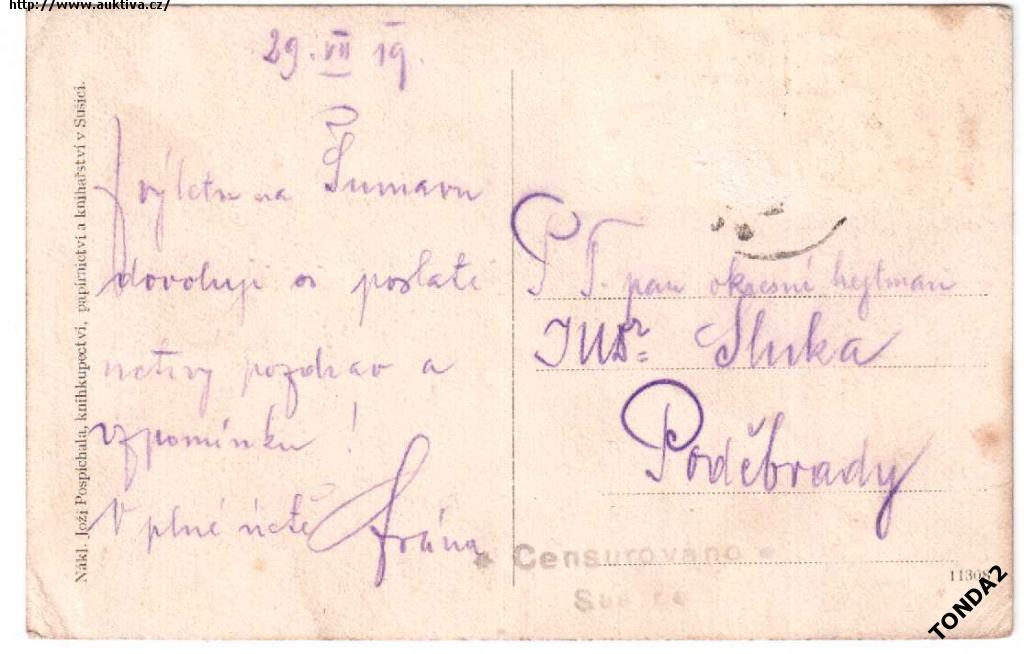 http://www.auktiva.cz/
29. VII 19.
Z výletu na Šumavu
dovoluji si poslati
uctivý pozdrav a
vzpomínku!
V plné úctě
P T. pan okresní hejtman
JUDr. Sluka
Poděbrady
* Censurováno *
Nákl. Joži Pospíchala, knihkupectví, papírnictví a knihařství v Sušici.
11308
TONDA2